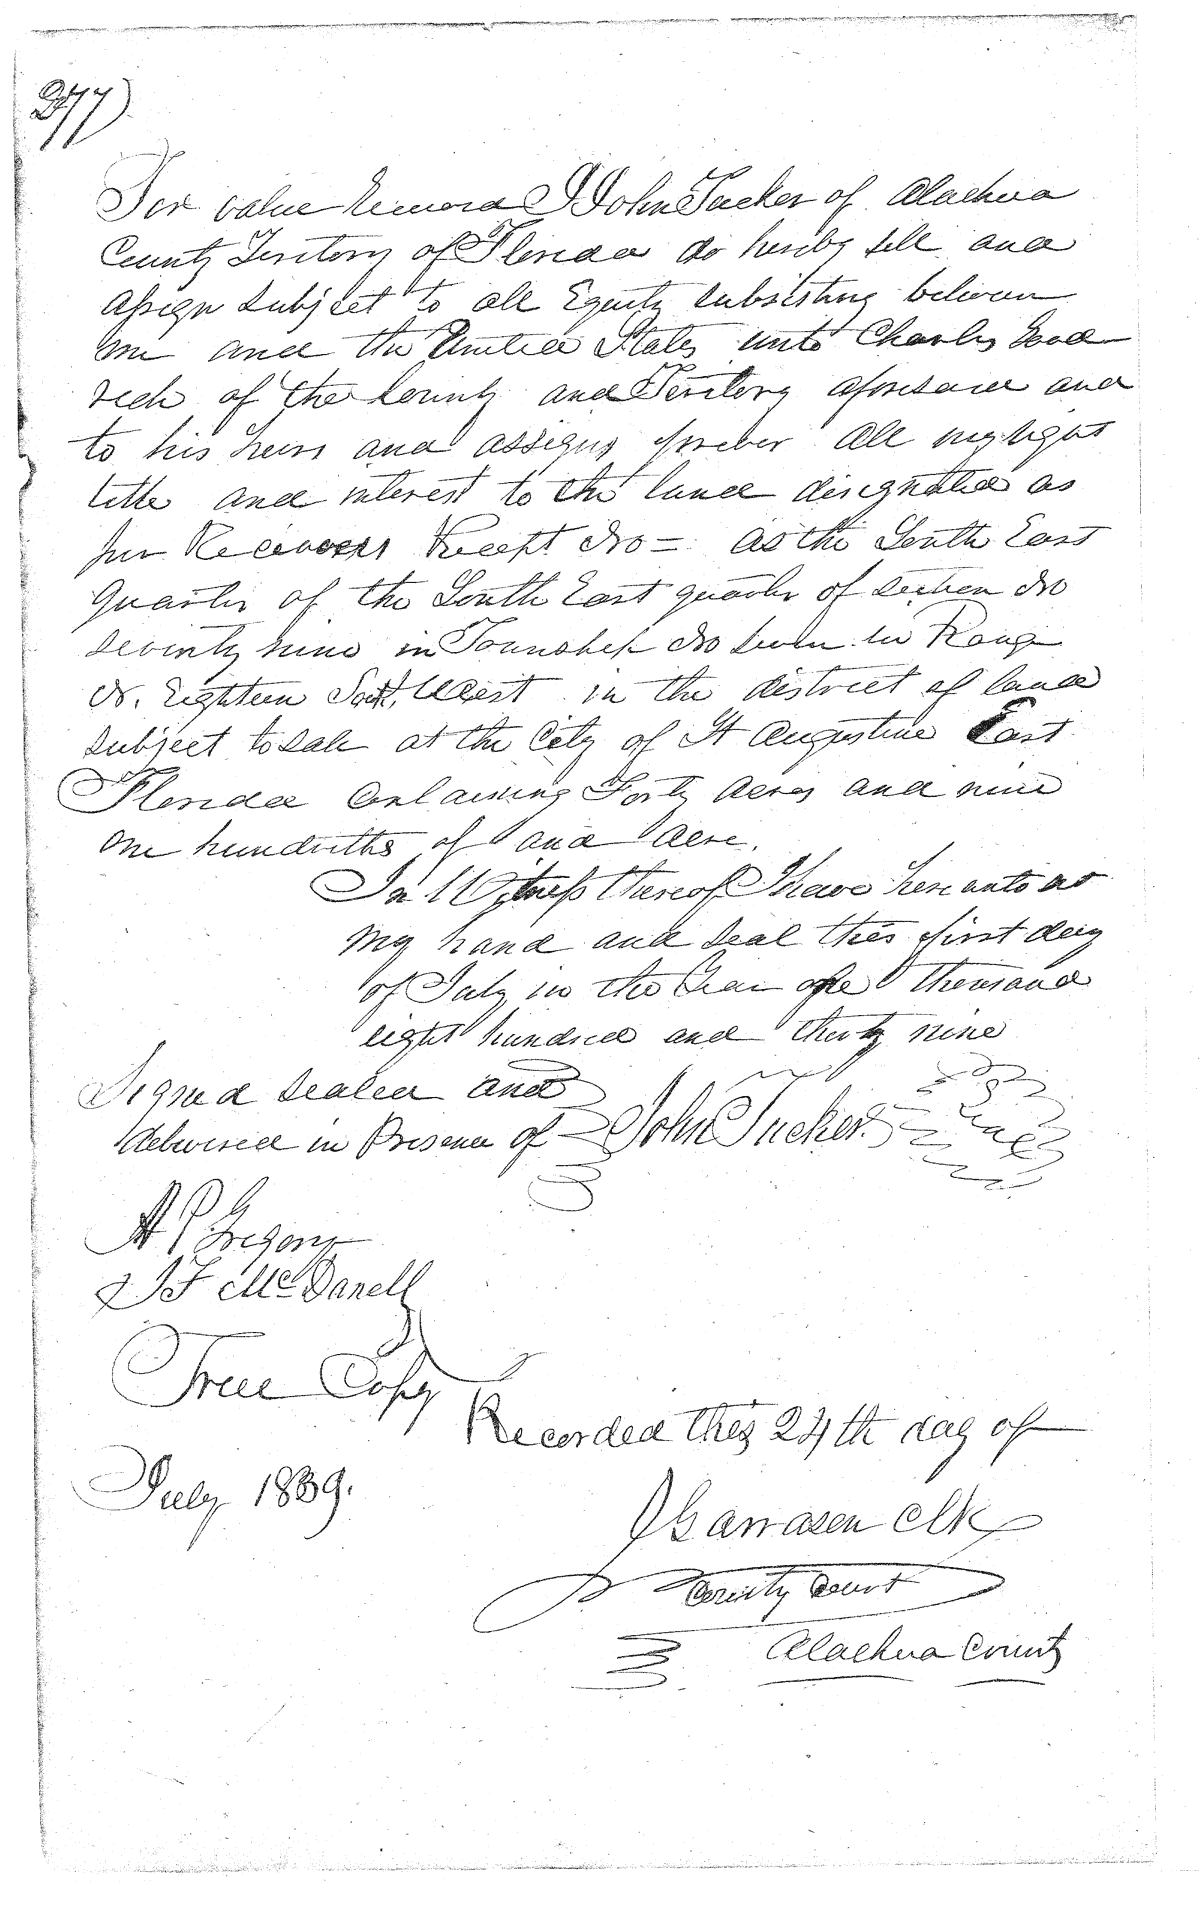 277)
For value Received I John Tucker of Alachua
County Territory of Florida do hereby sell and
assign subject to all Equity subsisting between
me and the United States unto Charles Good
rich of the County and Territory aforesaid and
to his heirs and assigns forever all my right
title and interest to the land designated as
per Receivers Receipt No = as the South East
Quarter of the South East quarter of section No
seventy nine in Township No seven in Range
No. Eighteen South, West in the district of lands
subject to sale at the City of St Augustine East
Florida Containing Forty Acres and nine
one hundredths of and Acre.
In Witness thereof I have here unto set
my hand and seal this first day
of July in the Year one thousand
eight hundred and thirty nine
Signed sealed and
delivered in Presence of John Tucker Seal
A P Gregory
J F McDanell
True Copy
Recorded this 24th day of
July 1839.
Clk
County Court
Alachua County